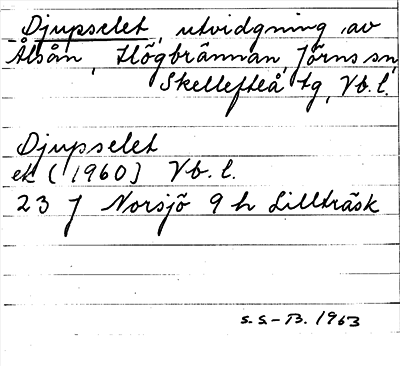 Djupselet, utvidgning av
Ålsån, Högbrännan, Jörns sn,
Skellefteå tg, Vb. l.
Djupselet
ek (1960) Vb. l.
23 J Norsjö 9 h Lillträsk
S.S.-B. 1963